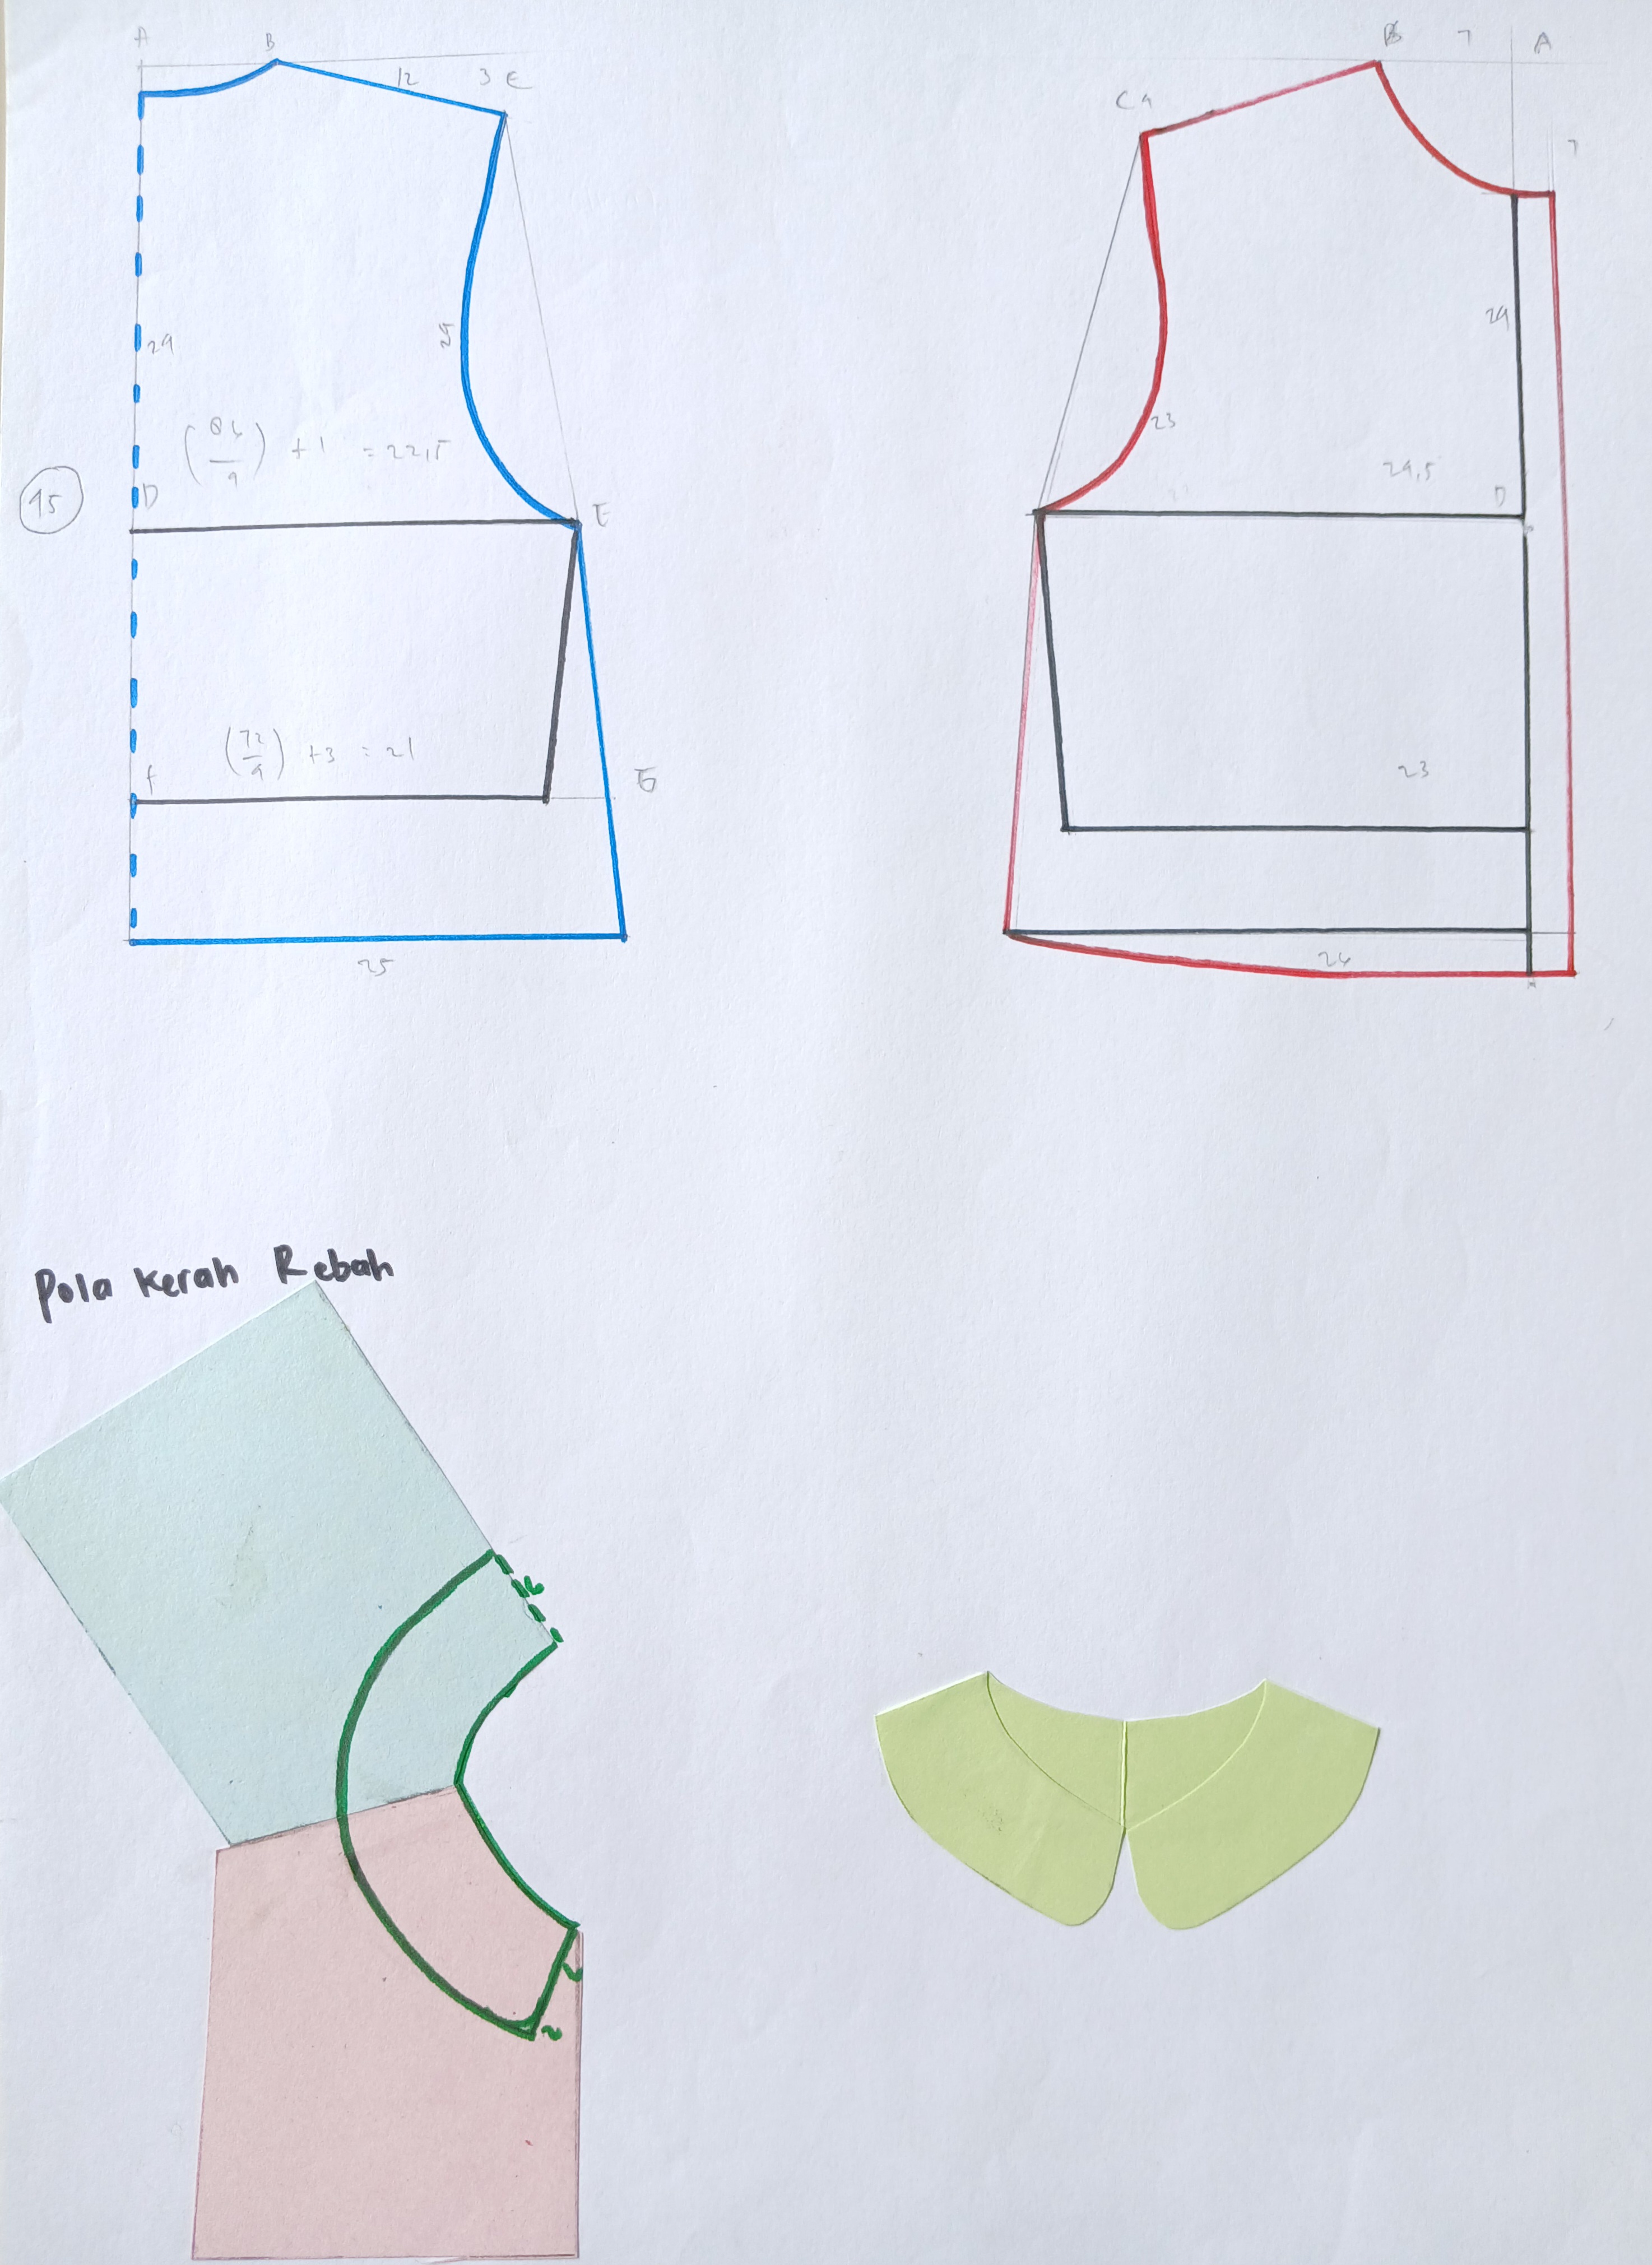 A B
12 3 C
29
29
(86/4) + 1 = 22,5
45
D E
(72/4) + 3 = 21
F G
25
B 7 A
C 4
7
29
23
24,5
D
23
26
Pola Kerah Rebah